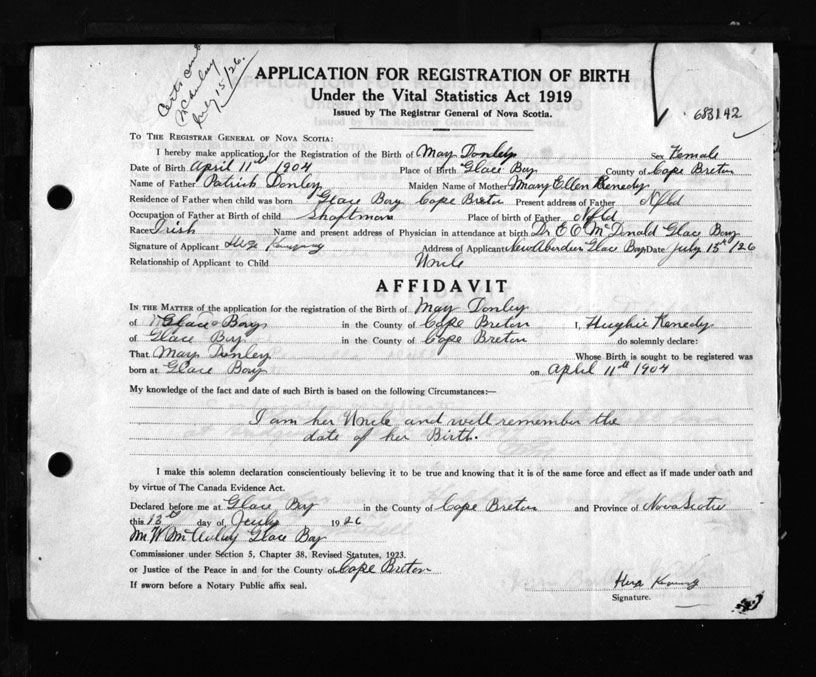 Certs
July 15/26.
APPLICATION FOR REGISTRATION OF BIRTH
Under the Vital Statistics Act 1919
Issued by The Registrar General of Nova Scotia.
683142
TO THE REGISTRAR GENERAL OF NOVA SCOTIA:
I hereby make application for the Registration of the Birth of May Donley Sex Female
Date of Birth April 11th 1904 Place of Birth Glace Bay County of Cape Breton
Name of Father Patrick Donley Maiden Name of Mother Mary Ellen Kenedy
Residence of Father when child was born Glace Bay Cape Breton Present address of Father Nfld
Occupation of Father at Birth of child Shaftman Place of birth of Father Nfld
Race Irish Name and present address of Physician in attendance at birth Dr McDonald Glace Bay
Signature of Applicant Address of Applicant New Aberdeen Glace Bay Date July 15th/26
Relationship of Applicant to Child Uncle
AFFIDAVIT
IN THE MATTER of the application for the registration of the Birth of May Donley
of Glace Bay in the County of Cape Breton I, Hughie Kenedy
of Glace Bay in the County of Cape Breton do solemnly declare:
That May Donley Whose Birth is sought to be registered was
born at Glace Bay on April 11th 1904
My knowledge of the fact and date of such Birth is based on the following Circumstances:—
I am her Uncle and well remember the
date of her Birth.
I make this solemn declaration conscientiously believing it to be true and knowing that it is of the same force and effect as if made under oath and
by virtue of The Canada Evidence Act.
Declared before me at Glace Bay in the County of Cape Breton and Province of Nova Scotia
this day of July 1926
Glace Bay
Commissioner under Section 5, Chapter 38, Revised Statutes, 1923.
or Justice of the Peace in and for the County of Cape Breton
If sworn before a Notary Public affix seal.
Signature.